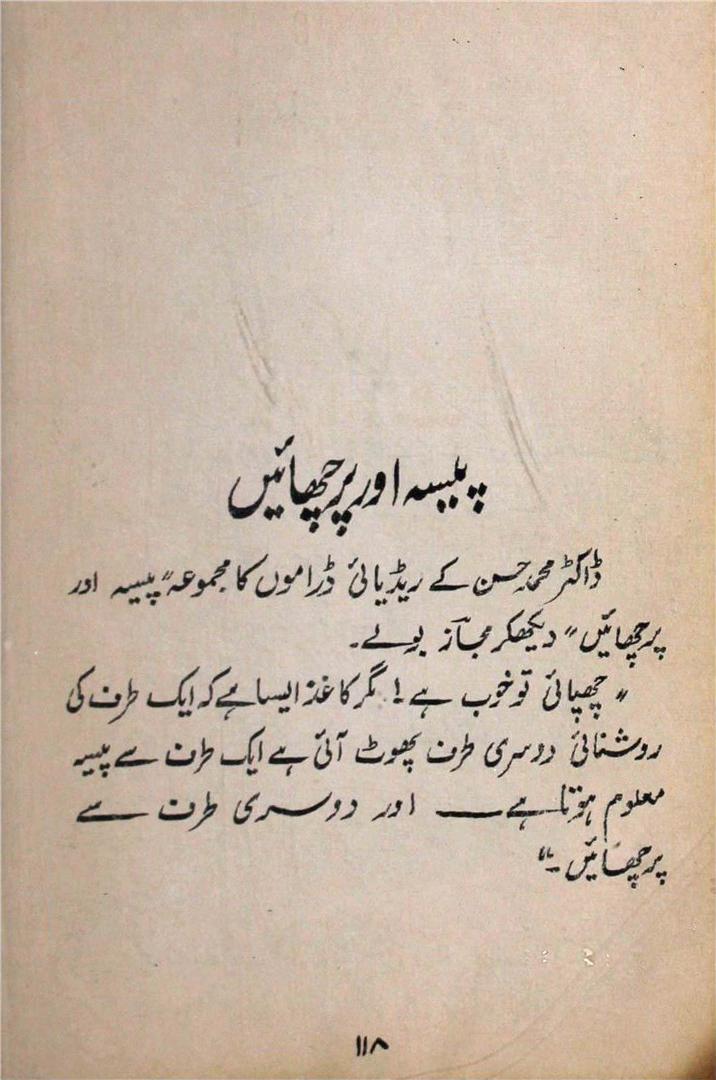 پیسہ اور پرچھائیں
ڈاکٹر محمد حسن کے ریڈیائی ڈراموں کا مجموعہ "پیسہ اور
پرچھائیں" دیکھکر مجاؔز بولے۔
"چھپائی تو خوب ہے! مگر کاغذ ایسا ہے کہ ایک طرف کی
روشنائی دوسری طرف پھوٹ آئی ہے ایک طرف سے پیسہ
معلوم ہوتا ہے — اور دوسری طرف سے
پرچھائیں۔"
۱۱۸